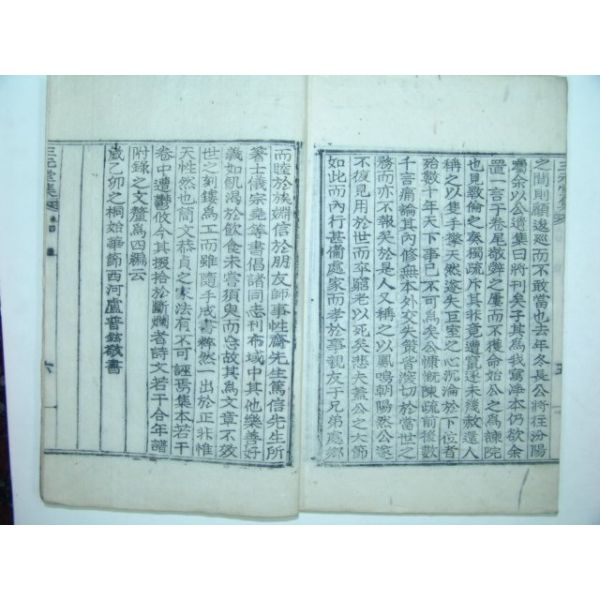 之間則顧逡巡而不敢當也去年冬長公將往汾陽
囑余以公遺集曰將刊矣子其爲我寫淨本仍欲余
置一言于卷尾敬辭之屢而不獲命始公之爲諫院
也見斁倫之奏獨疏斥其非竟遭忌未幾赦還人
稱之以隻手擎天然遂失巨室之心沉淪於下位者
殆數十年天下事已不可爲矣公慷慨陳疏前後數
千言痛論其內修無本外交失策皆深切於當世之
務而亦不報矣於是人又稱之以鳳鳴朝陽然公遂
不復見用於世而卒窮老以死矣悲夫蓋公之大節
如此而內行甚備處家而孝於事親友于兄弟處鄉
而睦於族姻信於朋友師事性齋先生篤信先生所
著士儀宗堯等書倡諸同志刊布域中其他樂善好
義如飢渴於飮食未嘗須臾而忘故其爲文章不效
世之刻鏤爲工而雖隨手成書粹然一出於正非惟
天性然也簡文恭貞之家法有不可誣焉集本若干
卷中遭鬱攸今其掇拾於斷爛者詩文若干合年譜
附錄之文釐爲四編云
歲乙卯之桐始華節西河盧普鉉敬書
三元堂集
六